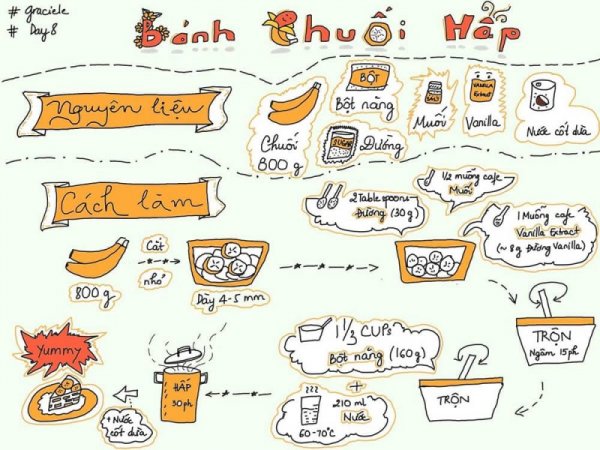 # graciele
# Day 8
Bánh Chuối Hấp
Nguyên liệu
Chuối
800 g
BỘT
Bột năng
SUGAR
Đường
SALT
Muối
VANILLA
Extract
Vanilla
Nước cốt dừa
Cách làm
800 g
Cắt
nhỏ
Dày 4-5 mm
2 Table spoons
Đường (30 g)
1/2 muỗng cafe
Muối
1 Muỗng cafe
Vanilla Extract
(~ 8g Đường Vanilla)
TRỘN
Ngâm 15 ph
1 1/3 CUPs
Bột năng (160g)
+
210 ml
Nước
60-70°C
TRỘN
HẤP
30 ph
+ Nước
cốt dừa
Yummy